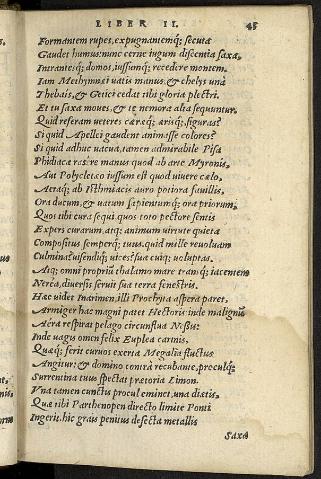 LIBER II. 45
Formantem rupes, expugnantemq́; secuta
Gaudet humus: nunc cerne iugum discentia saxa,
Intrantesq́; domos, iussumq́; recedere montem.
Iam Methymnæi vatis manus, & chelys una
Thebais, & Getici cedat tibi gloria plectri.
Et tu saxa moues, & te nemora alta sequuntur.
Quid referam veteres ceræq́; ærisq́; figuras?
Si quid Apellei gaudent animasse colores?
Si quid adhuc vacua, tamen admirabile Pisa
Phidiacæ rasere manus quod ab arte Myronis,
Aut Polycleteo iussum est quod viuere cælo,
Aeraq́; ab Isthmiacis auro potiora fauillis,
Ora ducum, & vatum sapientumq́; ora priorum,
Quos tibi cura sequi quos toto pectore sentis
Expers curarum, atq; animum virtute quieta
Compositus semperq́; tuus, quid mille reuoluam
Culmina? uisendiq́; vices? sua cuiq; voluptas.
Atq; omni propriū thalamo mare tranq́; iacentem
Nerea, diuersis seruit sua terra fenestris.
Hæc videt Inarimen, illi Prochyta aspera paret,
Armiger hac magni patet Hectoris: inde malignū
Aëra respirat pelago circunflua Nesis:
Inde vagis omen felix Euplea carinis,
Quæq; ferit curuos exerta Megalia fluctus
Angitur, & domino contrà recubante, proculq́;
Surrentina tuus spectat prætoria Limon.
Vna tamen cunctis procul eminet, una diætis,
Quæ tibi Parthenopen directo limite Ponti
Ingerit. hic Grais penitus desecta metallis
Saxa